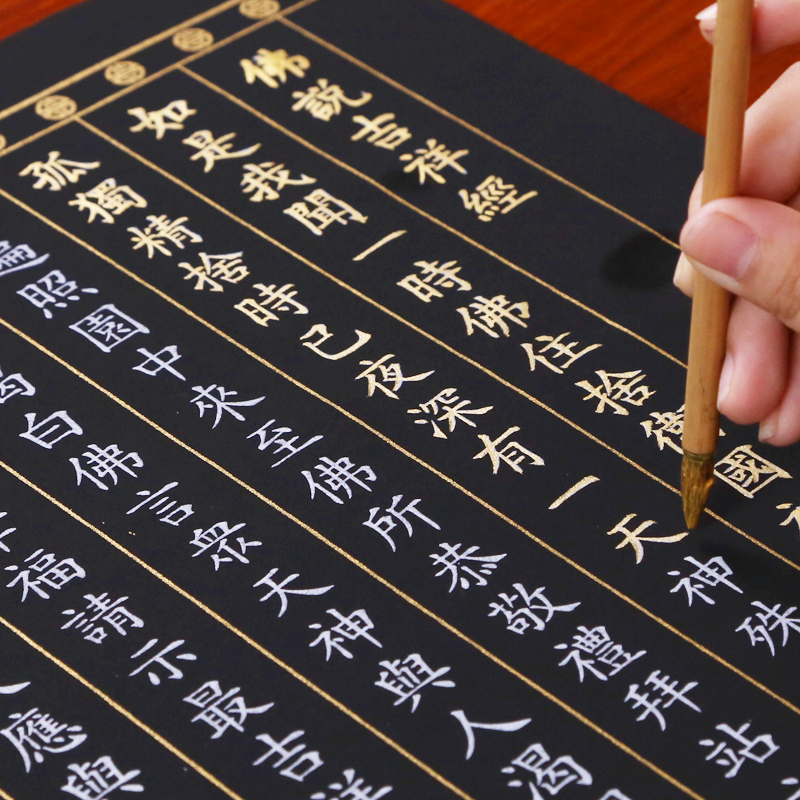 佛說吉祥經
如是我聞一時佛住捨衛國
孤獨精捨時已夜深有一天神殊
遍照園中來至佛所恭敬禮拜站
白佛言眾天神與人渴
福請示最吉祥
應與